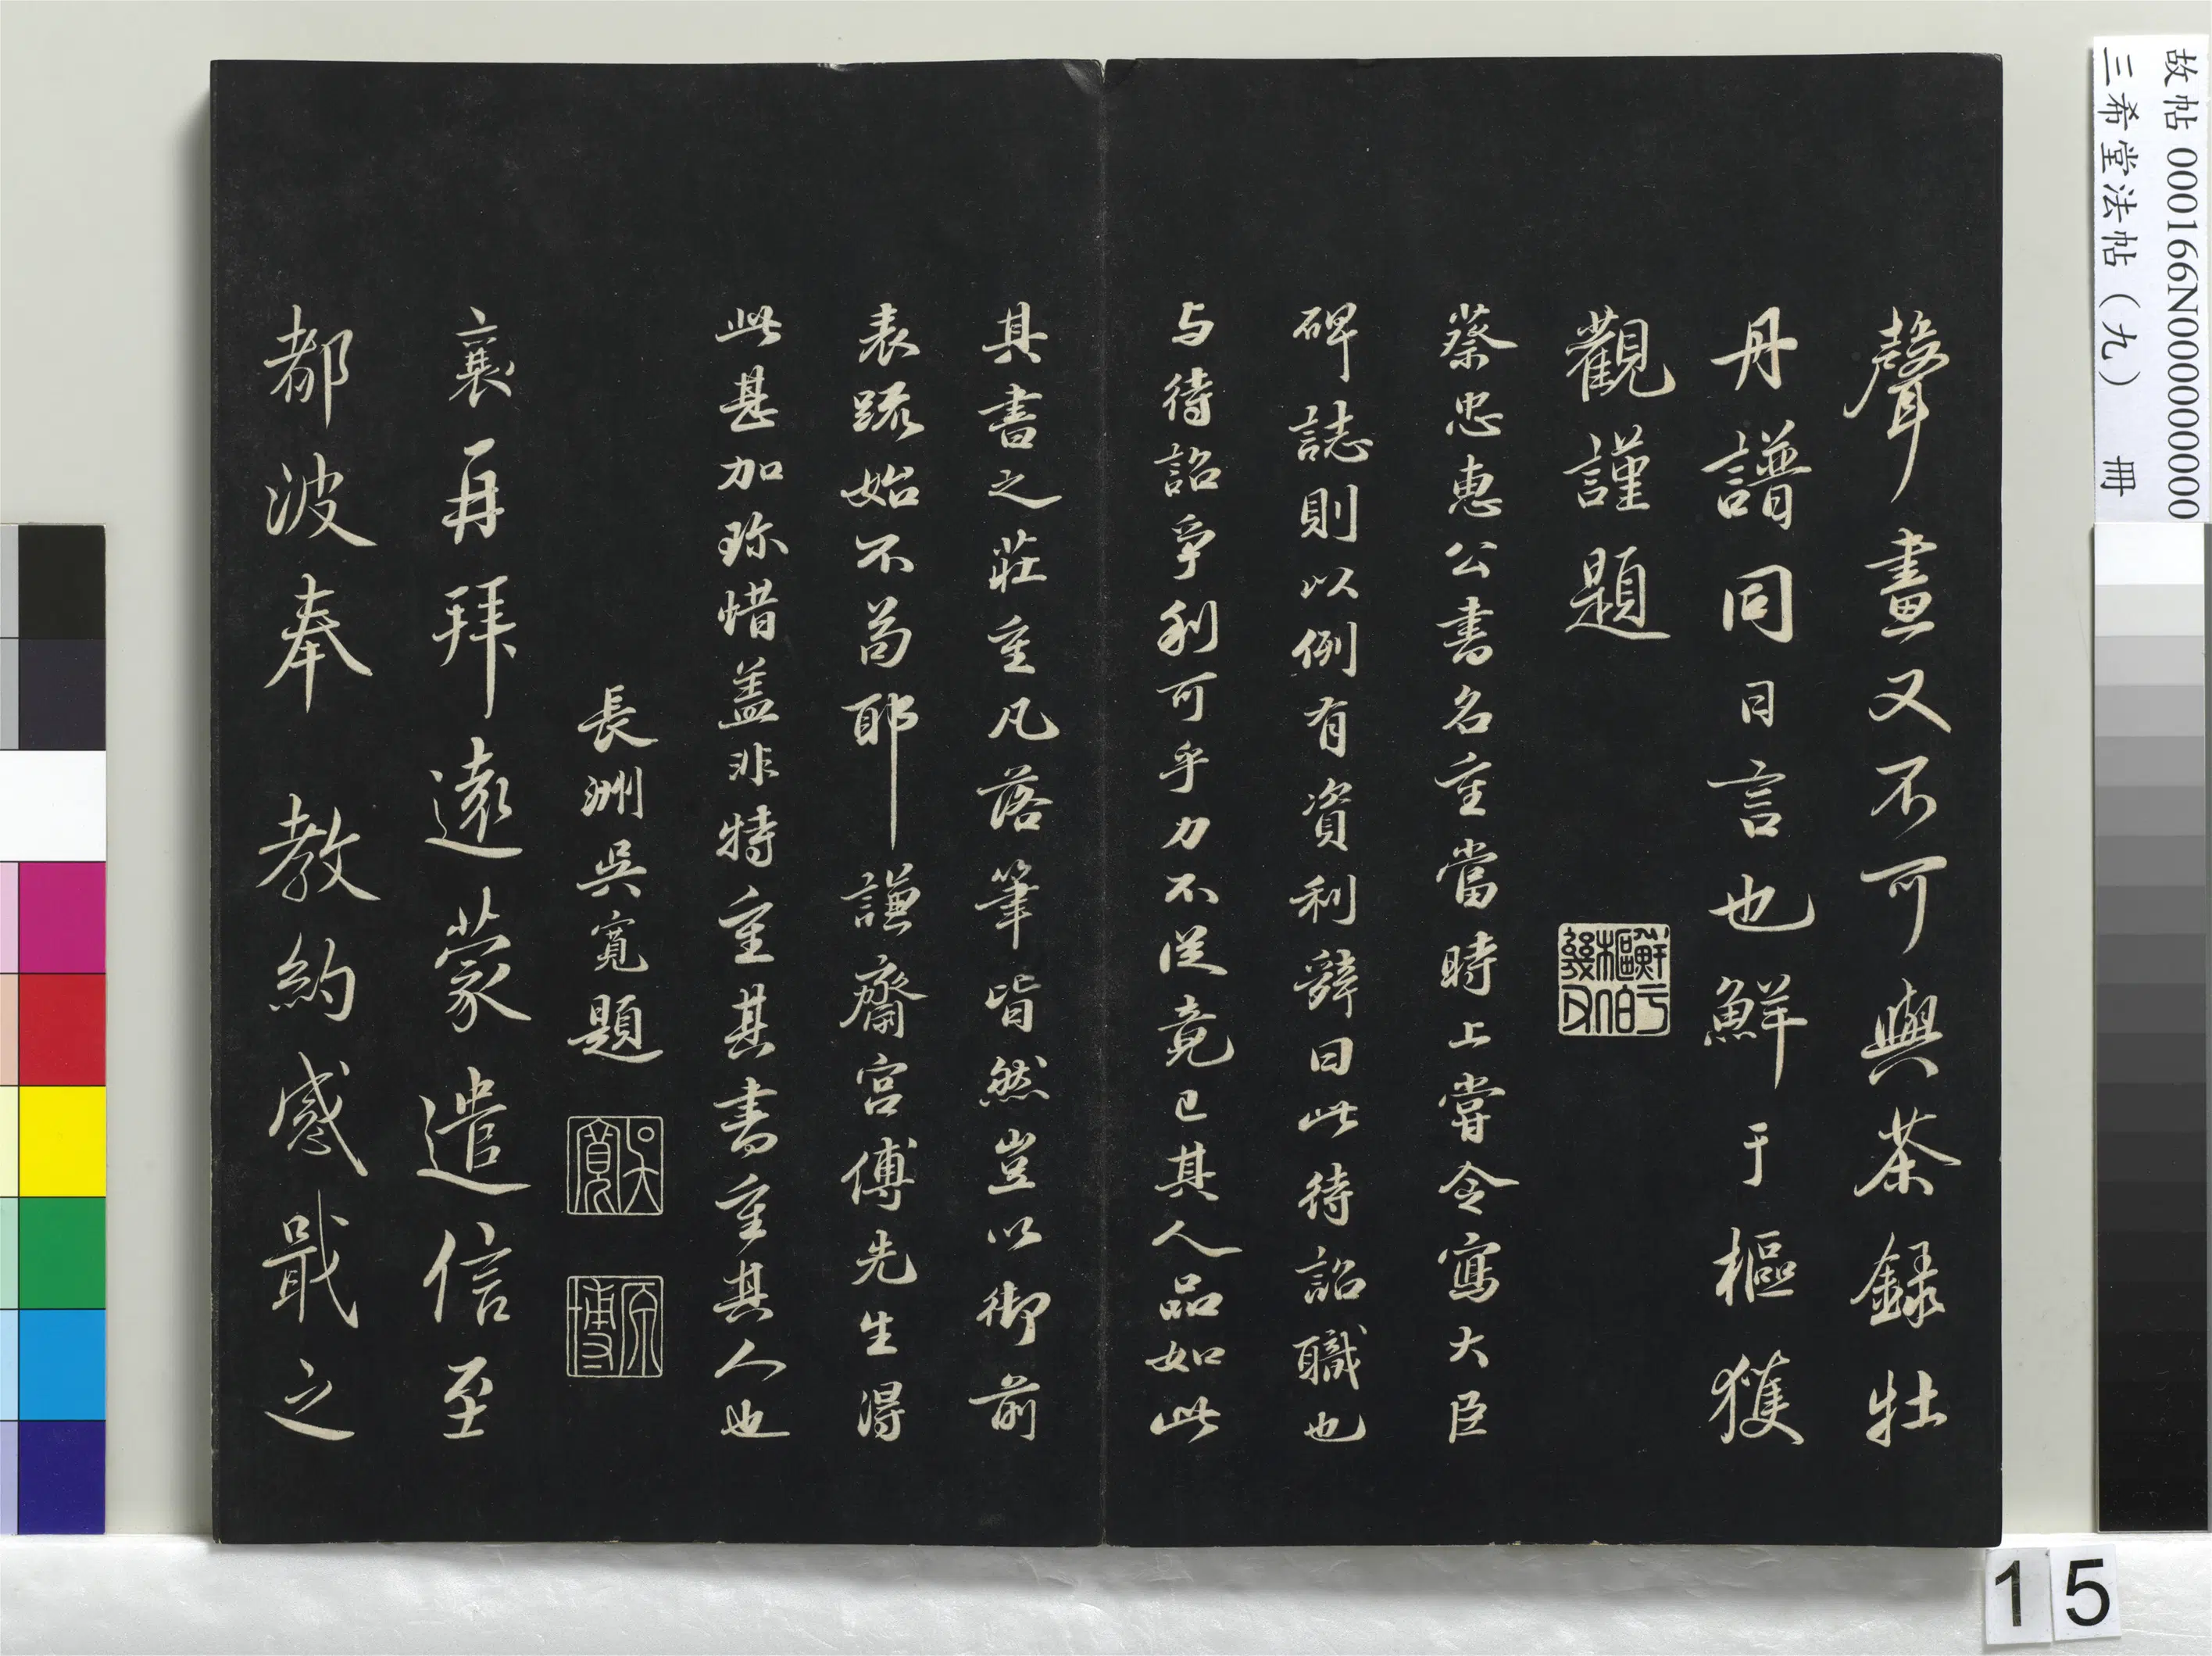 聲畫又不可與茶録牡
丹譜同日言也鮮于樞獲
觀謹題
鮮于樞伯幾父
蔡忠惠公書名重當時上嘗令寫大臣
碑誌則以例有資利辭曰此待詔職也
与待詔爭利可乎力不從竟已其人品如此
其書之莊重凡落筆皆然豈以御前
表疏始不苟耶謙齋宫傅先生得
此甚加珎惜盖非特重其書重其人也
長洲吳寬題
吳寬
原博
襄再拜遠蒙遣信至
都波奉教約感戢之
故帖 000166N000000000
三希堂法帖（九） 冊
15